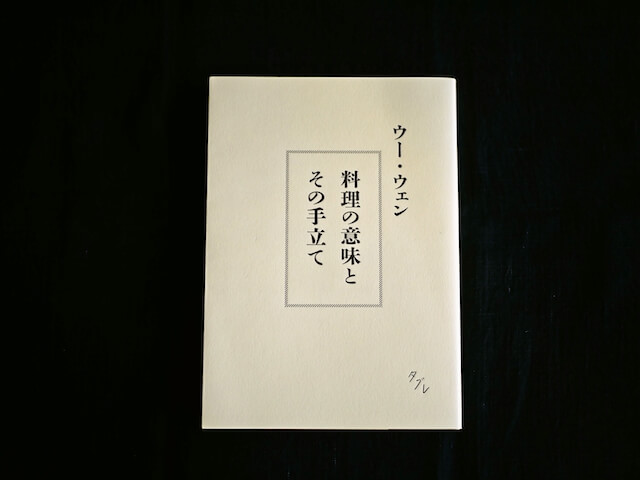 ウー・ウェン
料理の意味と
その手立て
タブレ